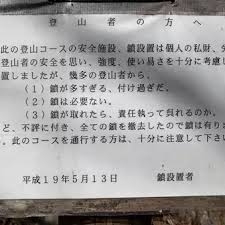 登山者の方へ
此の登山コースの安全施設、鎖設置は個人の私財、
登山者の安全を思い、強度、使い易さを十分に考慮し
置しましたが、幾多の登山者から、
(1)鎖が多すぎる、付け過ぎだ。
(2)鎖は必要ない。
(3)鎖が取れたら、責任執って呉れるのか。
ど、不評に付き、全ての鎖を撤去したので鎖は有りま
。此のコースを通行する方は、十分に注意して下さい
平成19年5月13日 鎖設置者